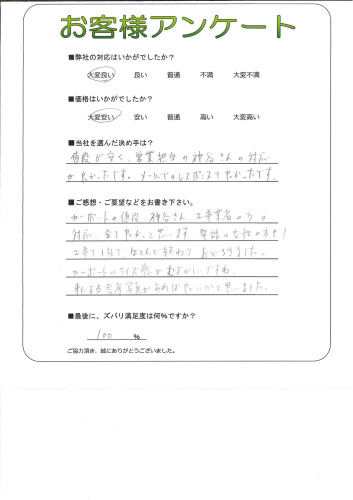 お客様アンケート
■弊社の対応はいかがでしたか？
大変良い 良い 普通 不満 大変不満
■価格はいかがでしたか？
大変安い 安い 普通 高い 大変高い
■当社を選んだ決め手は？
値段が安く、営業担当の神谷さんの対応
が良かったです。メールでのレスポンスも良かったです。
■ご感想・ご要望などをお書き下さい。
カーポートの値段、神谷さん、工事業者の方の
対応、全て良かったと思います。電話の女性の方も!
工事も1日で、ほとんど終わり おどろきました。
カーポートのサイズ感がむずかしいですね。
車による参考写真があれば良いかと思いました。
■最後に、ズバリ満足度は何％ですか？
100 ％
ご協力頂き、誠にありがとうございました。